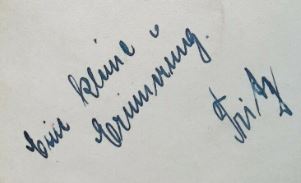 Eine kleine
Erinnerung.
Fritz